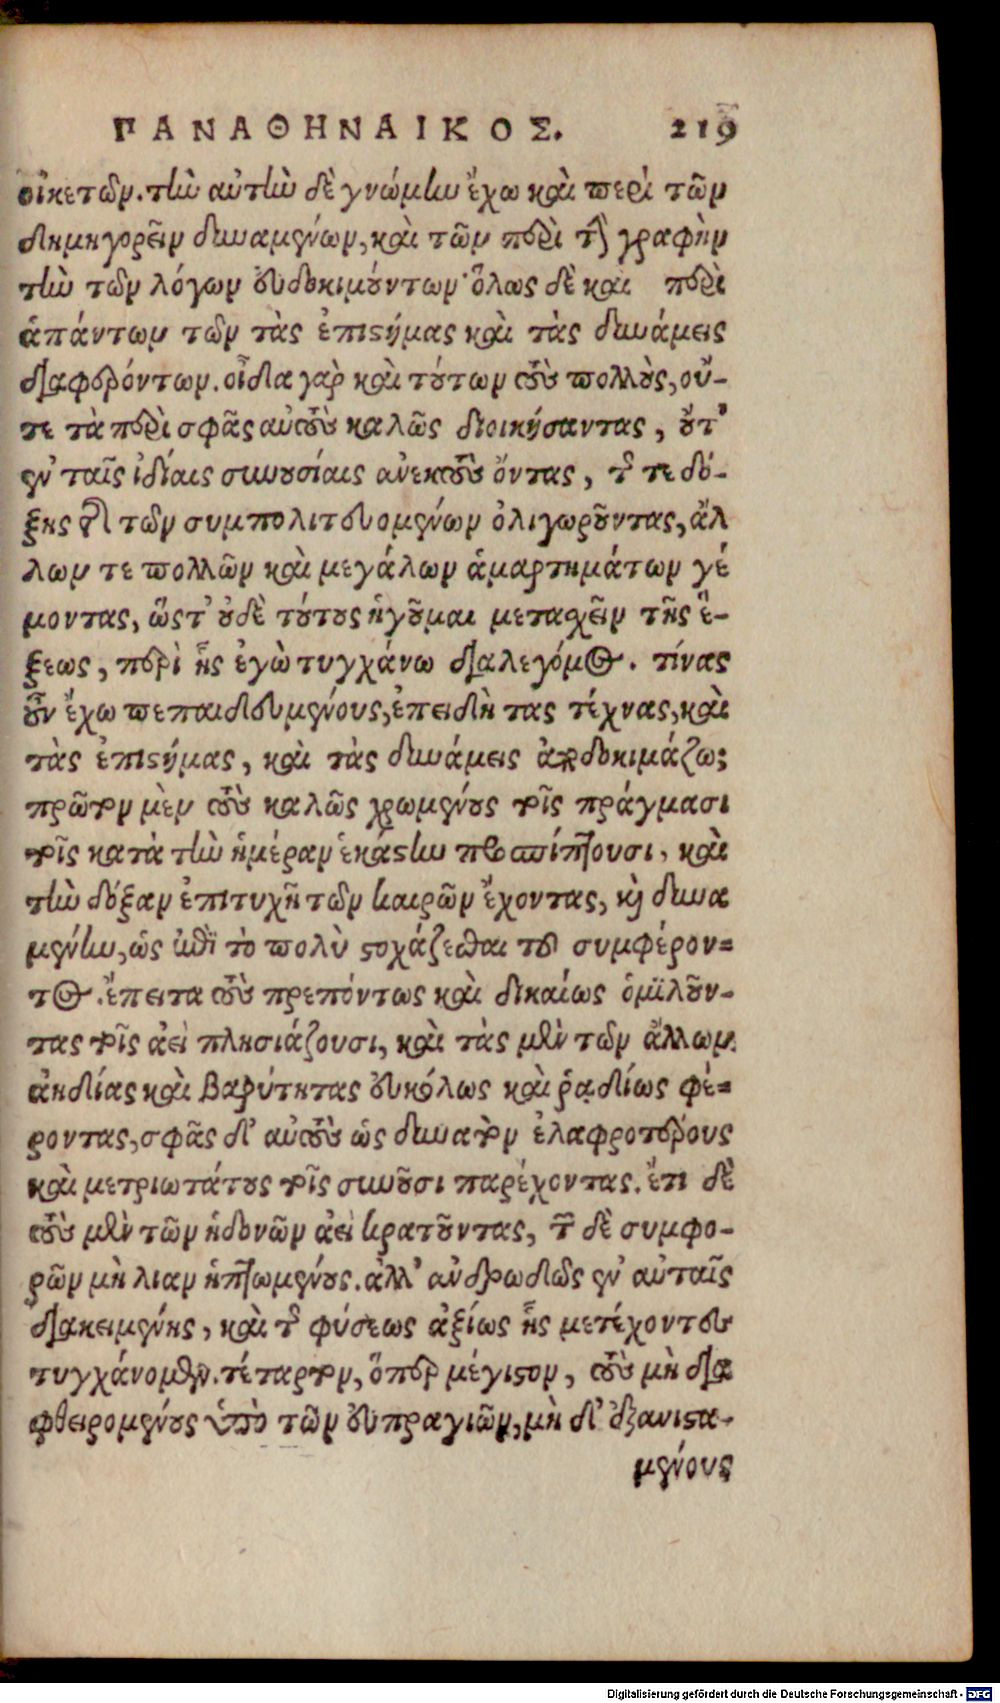 ΠΑΝΑΘΗΝΑΙΚΟΣ. 219
οἰκετῶν. τὴν αὐτὴν δὲ γνώμην ἔχω καὶ περὶ τῶν
δημηγορεῖν δυναμένων, καὶ τῶν περὶ τὴν γραφὴν
τὴν τῶν λόγων εὐδοκιμούντων· ὅλως δὲ καὶ περὶ
ἁπάντων τῶν τὰς ἐπιστήμας καὶ τὰς δυνάμεις
διαφερόντων. οἶδα γὰρ καὶ τούτων τοὺς πολλοὺς, οὔ-
τε τὰ περὶ σφᾶς αὐτοὺς καλῶς διοικήσαντας, οὔτ'
ἐν ταῖς ἰδίαις συνουσίαις ἀνεκτοὺς ὄντας, τῆς τε δό-
ξης τῆς τῶν συμπολιτευομένων ὀλιγωροῦντας, ἄλ
λων τε πολλῶν καὶ μεγάλων ἁμαρτημάτων γέ
μοντας, ὥστ' οὐδὲ τούτους ἡγοῦμαι μετασχεῖν τῆς ἕ-
ξεως, περὶ ἧς ἐγὼ τυγχάνω διαλεγόμενος. τίνας
οὖν ἔχω πεπαιδευμένους, ἐπειδὴ τας τέχνας, καὶ
τὰς ἐπιστήμας, καὶ τὰς δυνάμεις ἀποδοκιμάζω;
πρῶτον μὲν τοὺς καλῶς χρωμένους τοῖς πράγμασι
τοῖς κατὰ τὴν ἡμέραν ἑκάστην προσπίπτουσι, καὶ
τὴν δόξαν ἐπιτυχῆ τῶν καιρῶν ἔχοντας, καὶ δυνα
μένην, ὡς ἐπὶ τὸ πολὺ στοχάζεσθαι τοῦ συμφέρον-
τος. ἔπειτα τοὺς πρεπόντως καὶ δικαίως ὁμιλοῦν-
τας τοῖς ἀεὶ πλησιάζουσι, καὶ τὰς μὲν τῶν ἄλλων
ἀηδίας καὶ βαρύτητας εὐκόλως καὶ ῥᾳδίως φέ-
ροντας, σφᾶς δ' αὐτοὺς ὡς δυνατὸν ἐλαφροτέρους
καὶ μετριωτάτους τοῖς συνοῦσι παρέχοντας. ἔτι δὲ
τοὺς μὲν τῶν ἡδονῶν ἀεὶ κρατοῦντας, τῶν δὲ συμφο-
ρῶν μὴ λιαν ἡττωμένους. ἀλλ' ἀνδρωδῶς ἐν αὐταῖς
διακειμένης, καὶ τῆς φύσεως ἀξίως ἧς μετέχοντες
τυγχάνομεν. τέταρτον, ὅπερ μέγιστον, τοὺς μὴ δια
φθειρομένους ὑπὸ τῶν εὐπραγιῶν, μὴ δ' ἐξανιστα-
μένους
Digitalisierung gefördert durch die Deutsche Forschungsgemeinschaft - DFG